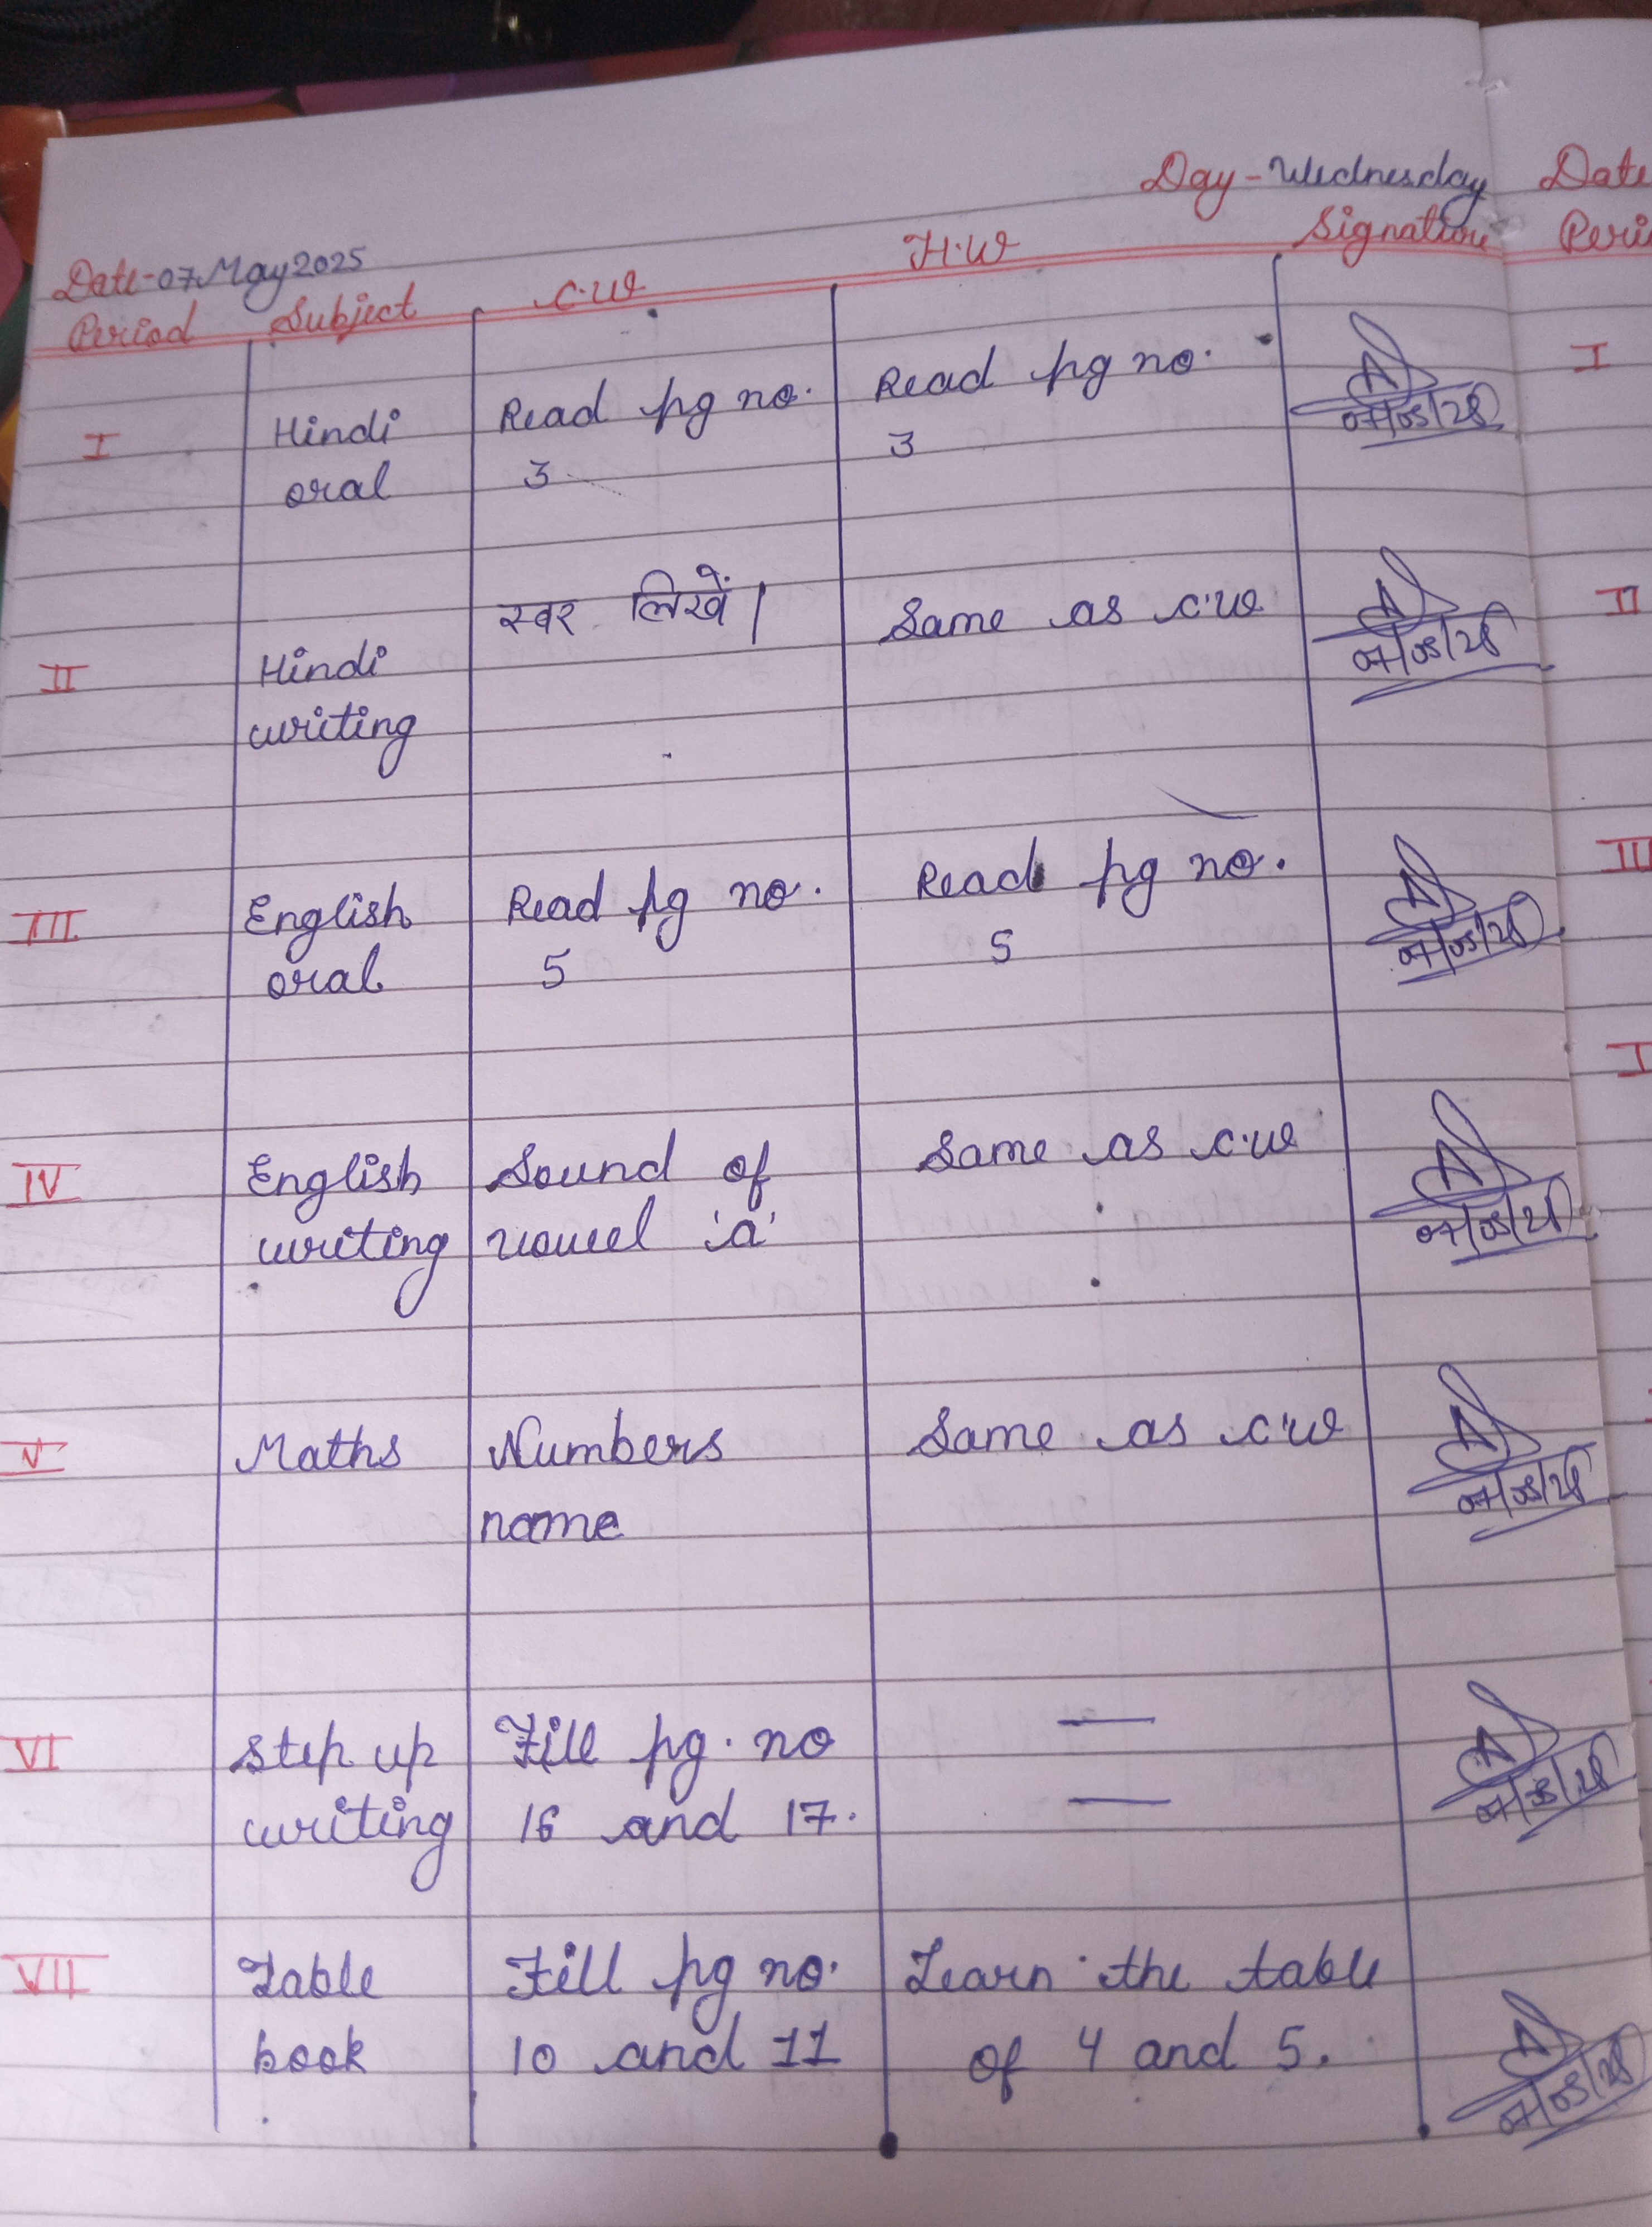 Day - Wednesday
Date - 07 May 2025
Period Subject C.W H.W Signature
I Hindi oral Read pg no. 3 Read pg no. 3 07/05/25
II Hindi writing स्वर लिखें। Same as c.w 07/05/25
III English oral Read pg no. 5 Read pg no. 5 07/05/25
IV English writing Sound of vowel 'a' Same as c.w 07/05/25
V Maths Numbers name Same as c.w 07/05/25
VI Step up writing Fill pg. no 16 and 17. — — 07/05/25
VII Table book Fill pg no. 10 and 11 Learn the table of 4 and 5. 07/05/25
Date
I
II